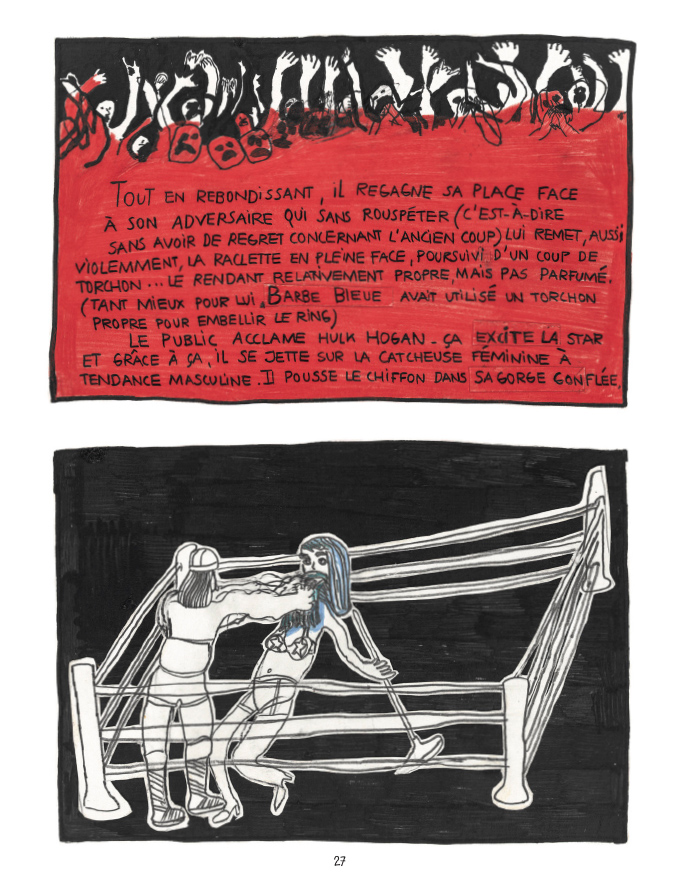 TOUT EN REBONDISSANT, iL REGAGNE SA PLACE FACE
À SON ADVERSAIRE QUI SANS ROUSPÉTER (C'EST-À-DIRE
SANS AVOIR DE REGRET CONCERNANT L'ANCIEN COUP) LUI REMET, AUSSI
VIOLEMMENT, LA RACLETTE EN PLEINE FACE, POURSUIVI D'UN COUP DE
TORCHON... LE RENDANT RELATIVEMENT PROPRE, MAIS PAS PARFUMÉ.
(TANT MIEUX POUR LUI, BARBE BLEUE AVAIT UTILISÉ UN TORCHON
PROPRE POUR EMBELLIR LE RING)
LE PUBLIC ACCLAME HULK HOGAN. ÇA EXCITE LA STAR
ET GRÂCE À ÇA, IL SE JETTE SUR LA CATCHEUSE FÉMININE À
TENDANCE MASCULINE. IL POUSSE LE CHIFFON DANS SA GORGE GONFLÉE.
27